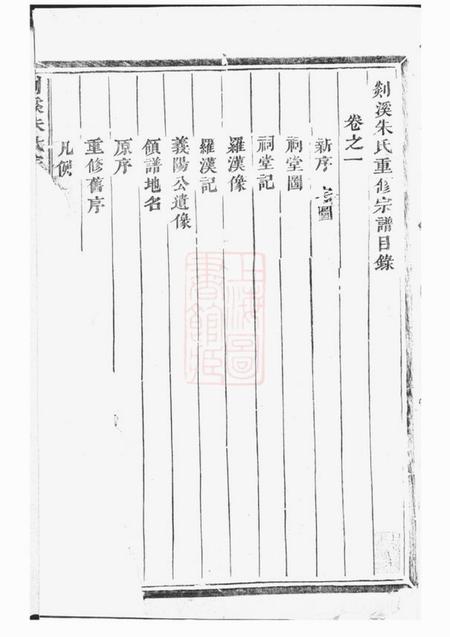 剡溪朱氏重修宗譜目錄
卷之一
新序
祠堂圖
祠堂記
羅漢像
羅漢記
義陽公遺像
領譜地名
原序
重修舊序
凡例
上海圖書館藏